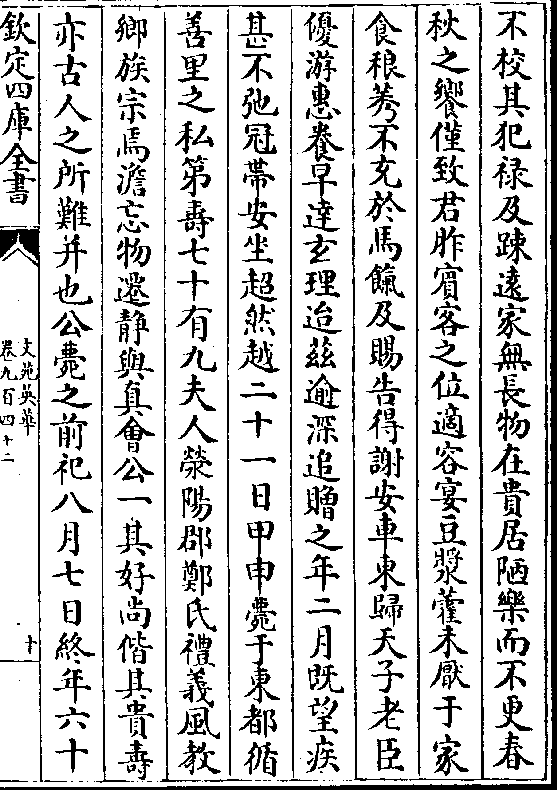 不校其犯禄及踈遠家無長物在貴居陋樂而不更春
秋之饗僅致君胙賔客之位適容宴豆漿藿未厭于家
食稂莠不充於馬餼及賜告得謝安車東歸天子老臣
優游惠養早達玄理迨茲逾深追贈之年二月既望疾
甚不弛冠帶安坐超然越二十一日甲申薨于東都循
善里之私第壽七十有九夫人滎陽郡鄭氏禮義風教
鄉族宗焉澹忘物遷静與真會公一其好尚偕其貴壽
亦古人之所難并也公薨之前祀八月七日終年六十
欽定四庫全書
文苑英華
卷九百四十二
十